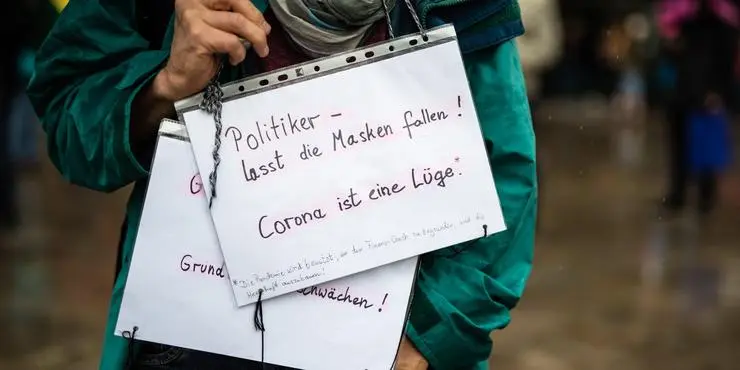 Politiker -
lasst die Masken fallen !
Corona ist eine Lüge!*
* Die Pandemie wird benutzt, um den Finanz-Crash zu begründen, und die
Herrschaft auszubauen!
G
Grund
schwächen !